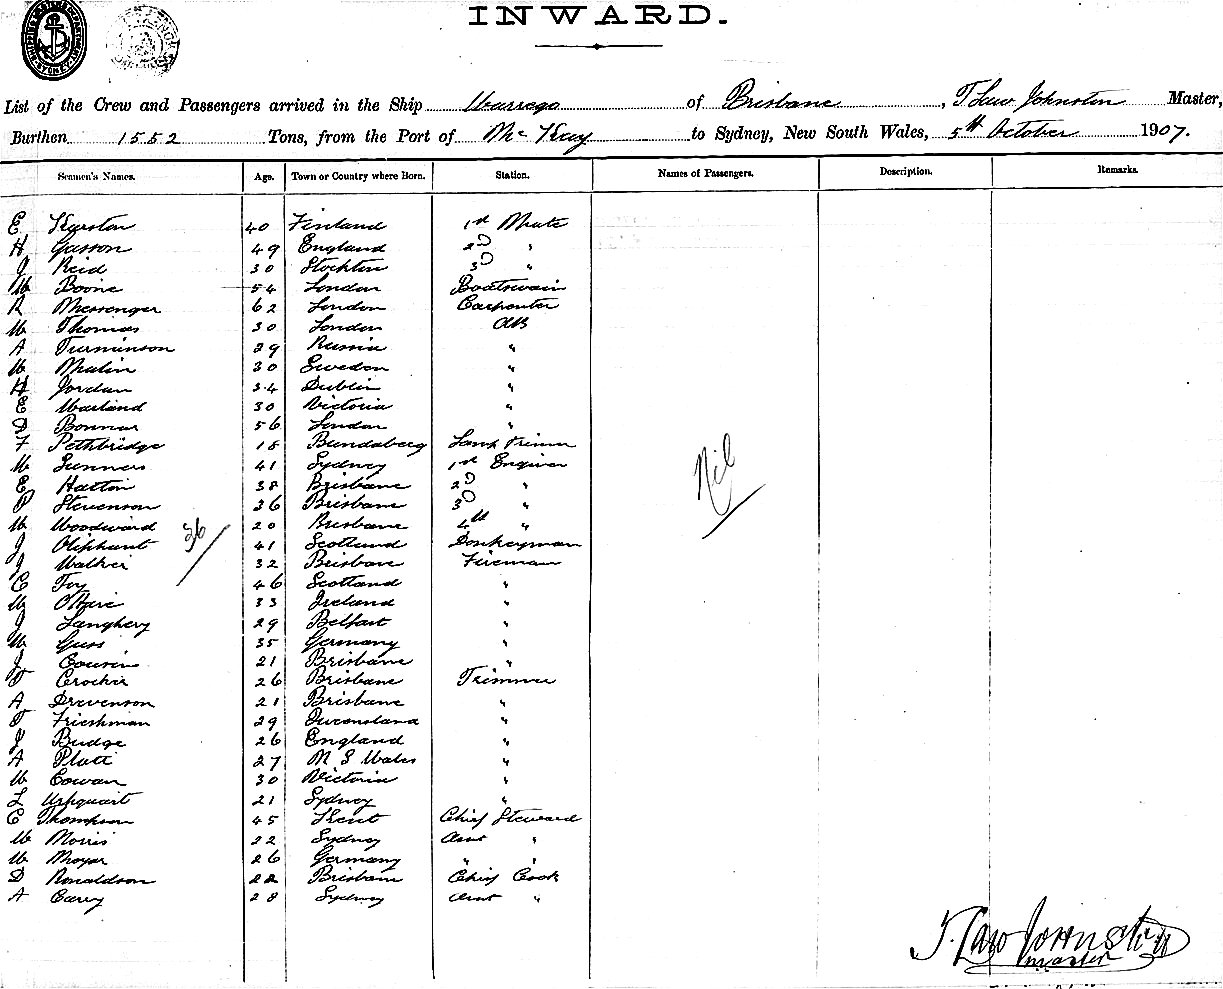 INWARD.
List of the Crew and Passengers arrived in the Ship Warrego of Brisbane, T Law Johnston Master,
Burthen 1552 Tons, from the Port of McKay to Sydney, New South Wales, 5th October 1907.
Seamen's Names. Age. Town or Country where Born. Station. Names of Passengers. Description. Remarks.
E Karston 40 Finland 1st Mate
H Gasson 49 England 2D "
J Reid 30 Stockton 3D "
W Boone 54 London Boatswain
R Messenger 62 London Carpenter
W Thomas 30 London AB
A Turminson 29 Russia "
W Malin 30 Sweden "
H Jordan 34 Dublin "
E Warland 30 Victoria "
D Bonnar 56 London "
F Pethbridge 18 Bundaberg Lamp Trimmer
W Sunners 41 Sydney 1st Engineer
E Hatton 38 Brisbane 2D "
P Stevenson 36 Brisbane 3D "
W Woodward 20 Brisbane 4th "
J Oliphant 41 Scotland Donkeyman
J Walker 32 Brisbane Fireman
C Foy 46 Scotland "
W O'Hare 33 Ireland "
J Langhery 29 Belfast "
W Guss 35 Germany "
J Cousin 21 Brisbane "
T Crocker 26 Brisbane Trimmer
A Drevenson 21 Brisbane "
T Frieshman 29 Queensland "
J Budge 26 England "
A Platt 27 N S Wales "
W Cowan 30 Victoria "
L Urhquart 21 Sydney "
C Thompson 45 Kent Chief Steward
W Morris 22 Sydney Asst "
W Moyar 26 Germany " "
D Ronaldson 22 Brisbane Chief Cook
A Carry 28 Sydney Asst "
36
Nil
T. Law Johnston
Master